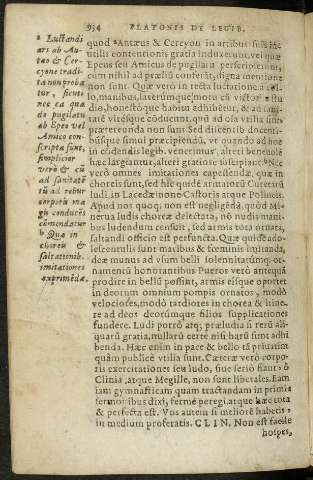 954 PLATONIS DE LEGIB.
a Luctandi
ars ab Au-
tæo & Cer-
cyone tradi-
ta non proba
tur, sicuti
nec ea qua
de pugilatu
ab Epeo vel
Amico con-
scripta sunt,
simplicior
verò & cū
ad sanitatē
tū ad robur
corporis ma
gis conducēs
cōmendatur
b Quæ in
choreis &
saltationib.
imitationes
exprimēdæ.
quod a Antæus & Cercyon in artibus suis inu-
tilis contentionis gratia induxerunt, vel quæ
Epeus seu Amicus de pugilatu perscripserunt,
cùm nihil ad præliū conferāt, digna mentione
non sunt. Quæ verò in recta luctatione a col-
lo, manibus, laterúmque motu cū victoriæ stu
dio, honestoque habitu adhibētur, & ad sani-
tatē virésque cōducūnt, quū ad oīa vtilia sint
prætereunda non sunt. Sed discentib. docenti-
busque simul præcipiendū, vt quando ad hoc
in cōdendis legib. venerimus, alteri beneuolē
hæc largiantur, alteri gratiose suscipiāt. b Nec
verò omnes imitationes capessendæ, quæ in
choreis sunt, sed hîc quidē armatorū Curetū
ludi, in Lacedæmone Castoris atque Pollucis.
Apud nos quoq; non est negligēda, quòd Mi-
nerua ludis choreæ delectata, nō nudis mani-
bus ludendum censuit, sed armis tota ornata,
saltandi officio est perfuncta. Quæ quidē ado-
lescentulis sunt maribus & fœminis imitanda,
deæ munus ad vsum belli solennitatúmq; or-
namentū honorantibus Pueros verò antequā
prodire in bellū possint, armis eísque oportet
in deorum omnium pompis ornatos, modò
velociores, modò tardiores in chorea & itine-
re ad deos deorúmque filios supplicationes
fundere. Ludi porrò atq; præludia si rerū ali-
quarū gratia, nullarū certè nisi harū sunt adhi
benda. Hæc enim in pace & bello tā priuatim
quàm publicè vtilia sunt. Cæteræ verò corpo-
ris exercitationes seu ludo, siue seriò fiant, ô
Clinia, atque Megille, non sunt liberales. Eam
iam gymnasticam quam tractandam in primis
sermonibus dixi, fermè peregi, atque hæc tota
& perfecta est. Vos autem si meliorē habetis,
in medium proferatis. CLIN. Non est facile
hospes,